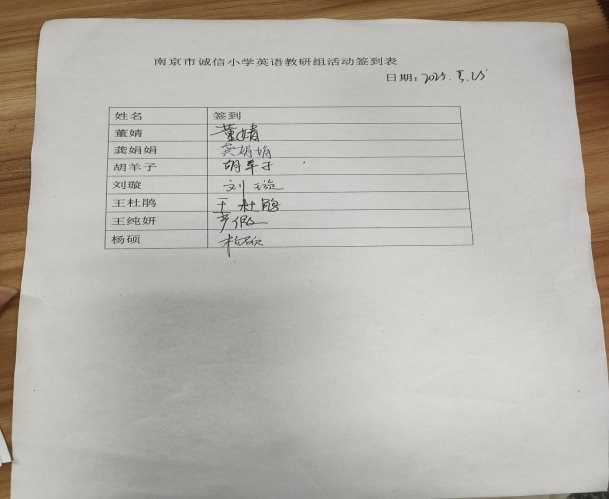 南京市诚信小学英语教研组活动签到表
日期：2025.3.25
姓名 签到
董婧 董婧
龚娟娟 龚娟娟
胡羊子 胡羊子
刘璇 刘璇
王杜鹃 王杜鹃
王纯妍 产假
杨硕 杨硕